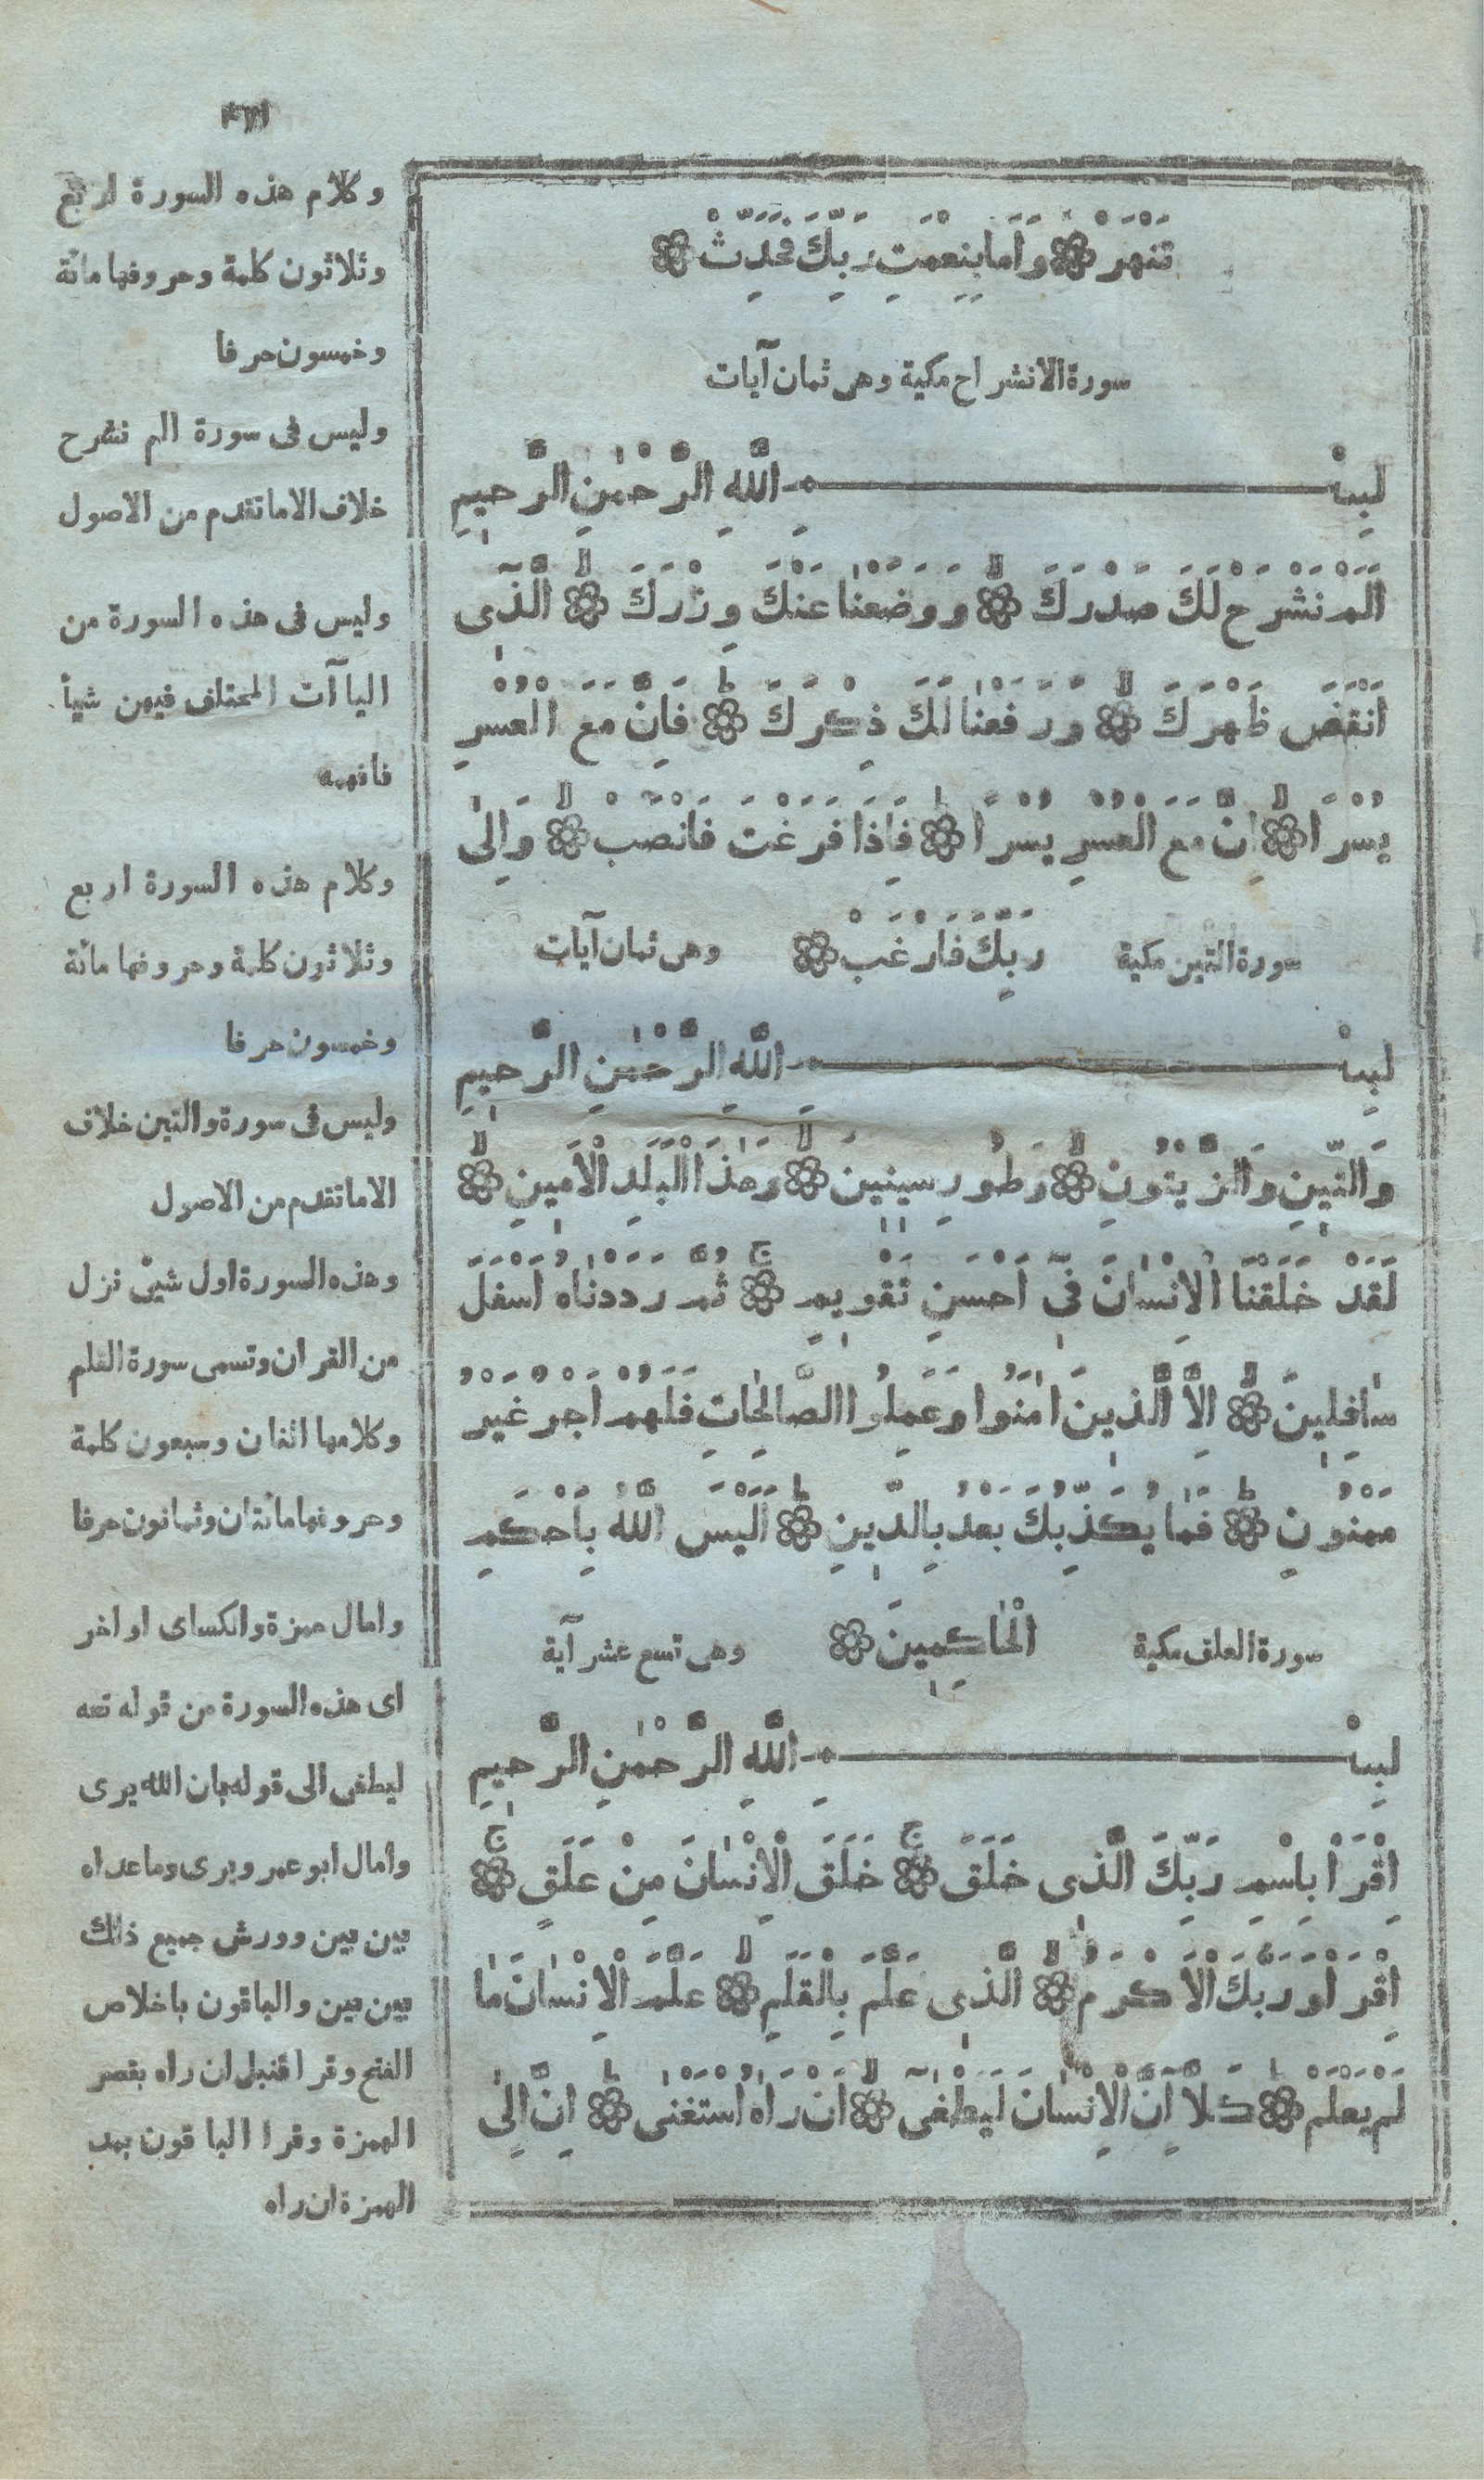 تَنْهَرْ وَاَمَّا بِنِعْمَتِ رَبِّكَ فَحَدِّثْ
سورة الانشراح مكية وهى ثمان آيات
بِسْــــــمِ اللَّهِ الرَّحْمٰنِ الرَّحِيمِ
اَلَمْ نَشْرَحْ لَكَ صَدْرَكَ لا وَوَضَعْنٰا عَنْكَ وِزْرَكَ لا الَّذٖٓى
اَنْقَضَ ظَهْرَكَ لا وَرَفَعْنٰا لَكَ ذِكْرَكَ ط فَاِنَّ مَعَ الْعُسْرِ
يُسْرًا لا اِنَّ مَعَ الْعُسْرِ يُسْرًا ط فَاِذَا فَرَغْتَ فَانْصَبْ لا وَاِلٰى
سورة التين مكية رَبِّكَ فَارْغَبْ وهى ثمان آيات
بِسْــــــمِ اللَّهِ الرَّحْمٰنِ الرَّحِيمِ
وَالتّٖينِ وَالزَّيْتُونِ لا وَطُورِ سٖينٖينَ لا وَهٰذَا الْبَلَدِ الْاَمٖينِ لا
لَقَدْ خَلَقْنَا الْاِنْسٰانَ فٖٓى اَحْسَنِ تَقْوٖيمٍ ج ثُمَّ رَدَدْنٰاهُ اَسْفَلَ
سٰافِلٖينَ لا اِلَّا الَّذٖينَ اٰمَنُوا وَعَمِلُوا الصَّالِحٰاتِ فَلَهُمْ اَجْرٌ غَيْرُ
مَمْنُونٍ ط فَمٰا يُكَذِّبُكَ بَعْدُ بِالدّٖينِ ط اَلَيْسَ اللَّهُ بِاَحْكَمِ
سورة العلق مكية الْحٰاكِمٖينَ وهى تسع عشر آية
بِسْــــــمِ اللَّهِ الرَّحْمٰنِ الرَّحِيمِ
اِقْرَاْ بِاسْمِ رَبِّكَ الَّذٖى خَلَقَ ج خَلَقَ الْاِنْسٰانَ مِنْ عَلَقٍ ج
اِقْرَاْ وَرَبُّكَ الْاَكْرَمُ لا الَّذٖى عَلَّمَ بِالْقَلَمِ لا عَلَّمَ الْاِنْسٰانَ مٰا
لَمْ يَعْلَمْ ط كَلَّآ اِنَّ الْاِنْسٰانَ لَيَطْغٰىٓ لا اَنْ رَاٰهُ اسْتَغْنٰى ط اِنَّ اِلٰى
وكلام هذه السورة اربع
وثلاثون كلمة وحروفها مائة
وخمسون حرفا
وليس فى سورة الم نشرح
خلاف الاماتقدم من الاصول
وليس فى هذه السورة من
الياآت المختلف فيهن شيأ
فافهمه
وكلام هذه السورة اربع
وثلاثون كلمة وحروفها مائة
وخمسون حرفا
وليس فى سورة والتين خلاف
الاماتقدم من الاصول
وهذه السورة اول شيئ نزل
من القران وتسمى سورة القلم
وكلامها اثنان وسبعون كلمة
وحروفها مائتان وثمانون حرفا
وامال حمزة والكساى اواخر
اى هذه السورة من قوله تعه
ليطغى الى قوله بان الله يرى
وامال ابو عمرو يرى وماعداه
بين بين وورش جميع ذلك
بين بين والباقون باخلاص
الفتح وقرا قنبل ان راه بقصر
الهمزة وقرا الباقون بمد
الهمزة ان راه